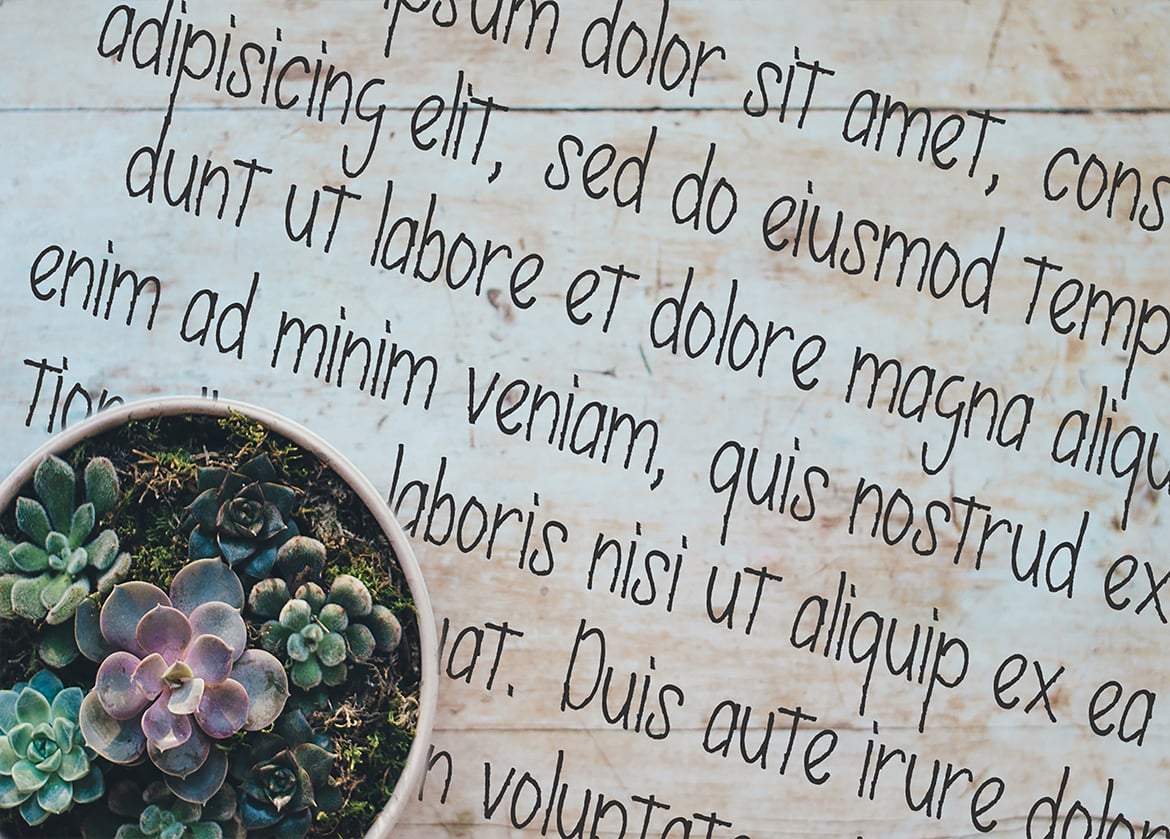 ipsum dolor sit amet, cons
adipisicing elit, sed do eiusmod temp
dunt ut labore et dolore magna aliqu
enim ad minim veniam, quis nostrud ex
tion laboris nisi ut aliquip ex ea
uat. Duis aute irure dolor
n voluptate